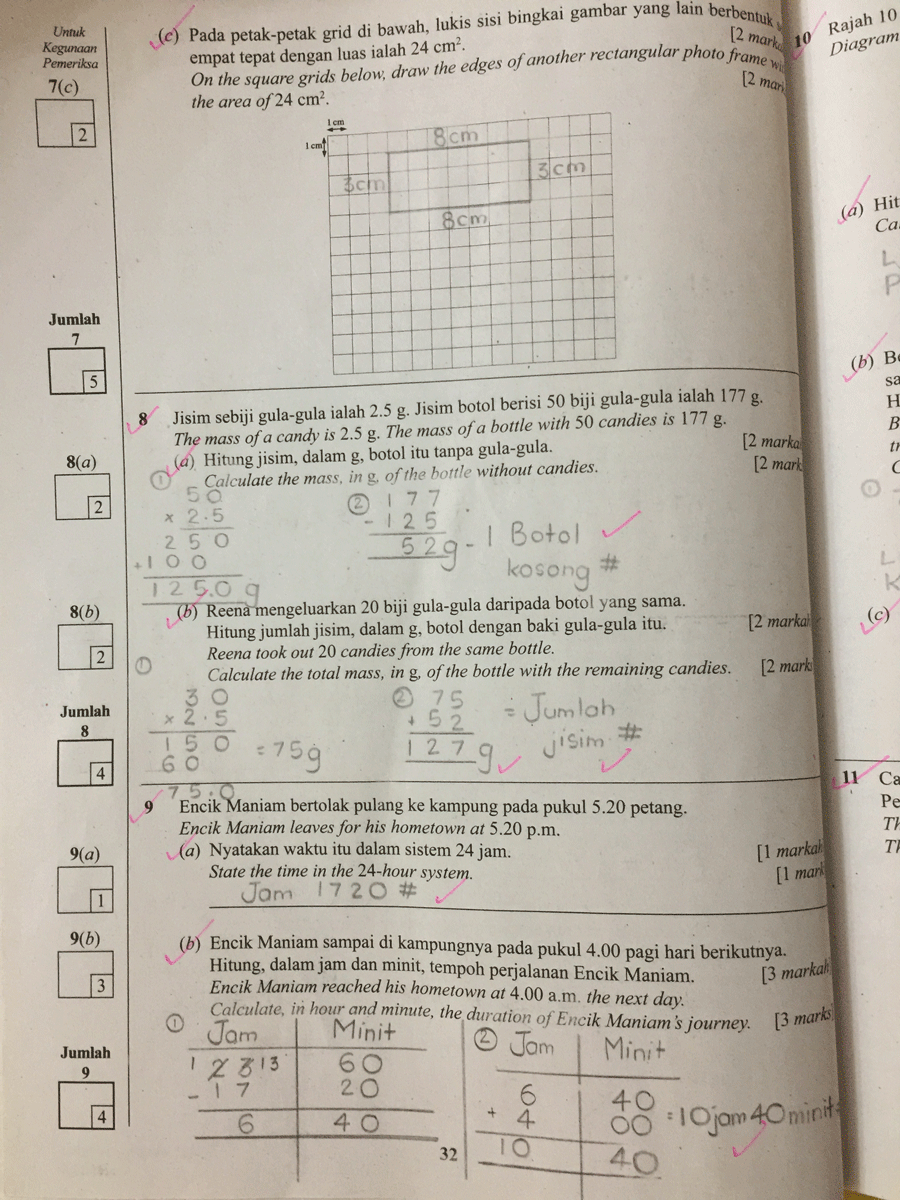 Untuk
Kegunaan
Pemeriksa
7(c)
2
Jumlah
7
5
8(a)
2
8(b)
2
Jumlah
8
4
9(a)
1
9(b)
3
Jumlah
9
4
(c) Pada petak-petak grid di bawah, lukis sisi bingkai gambar yang lain berbentuk
empat tepat dengan luas ialah 24 cm².
[2 marka
On the square grids below, draw the edges of another rectangular photo frame wi
the area of 24 cm².
[2 mark
1 cm
1 cm
8cm
3cm
3cm
8cm
8 Jisim sebiji gula-gula ialah 2.5 g. Jisim botol berisi 50 biji gula-gula ialah 177 g.
The mass of a candy is 2.5 g. The mass of a bottle with 50 candies is 177 g.
(a) Hitung jisim, dalam g, botol itu tanpa gula-gula. [2 marka
Calculate the mass, in g, of the bottle without candies. [2 mark
①
50
x 2.5
250
+100
125.0 g
② 177
- 125
52g - 1 Botol
kosong #
(b) Reena mengeluarkan 20 biji gula-gula daripada botol yang sama.
Hitung jumlah jisim, dalam g, botol dengan baki gula-gula itu. [2 markah
Reena took out 20 candies from the same bottle.
Calculate the total mass, in g, of the bottle with the remaining candies. [2 mark
①
30
x 2.5
150
60
75.0
= 75g
② 75
+ 52
127g
= Jumlah
jisim #
9 Encik Maniam bertolak pulang ke kampung pada pukul 5.20 petang.
Encik Maniam leaves for his hometown at 5.20 p.m.
(a) Nyatakan waktu itu dalam sistem 24 jam. [1 markah
State the time in the 24-hour system. [1 mark
Jam 1720 #
(b) Encik Maniam sampai di kampungnya pada pukul 4.00 pagi hari berikutnya.
Hitung, dalam jam dan minit, tempoh perjalanan Encik Maniam. [3 markah
Encik Maniam reached his hometown at 4.00 a.m. the next day.
Calculate, in hour and minute, the duration of Encik Maniam's journey. [3 marks
① Jam Minit
1 2 3 13 60
- 17 20
6 40
② Jam Minit
6 40
+ 4 00
10 40
= 10jam 40minit
32
10 Rajah 10
Diagram
(a) Hit
Ca
L
P
(b) Be
sa
H
B
tr
C
①
L
K
(c)
11 Ca
Pe
Th
Th